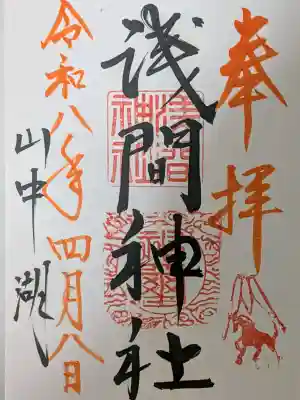 奉拝
浅間神社
山中湖
令和八年四月八日